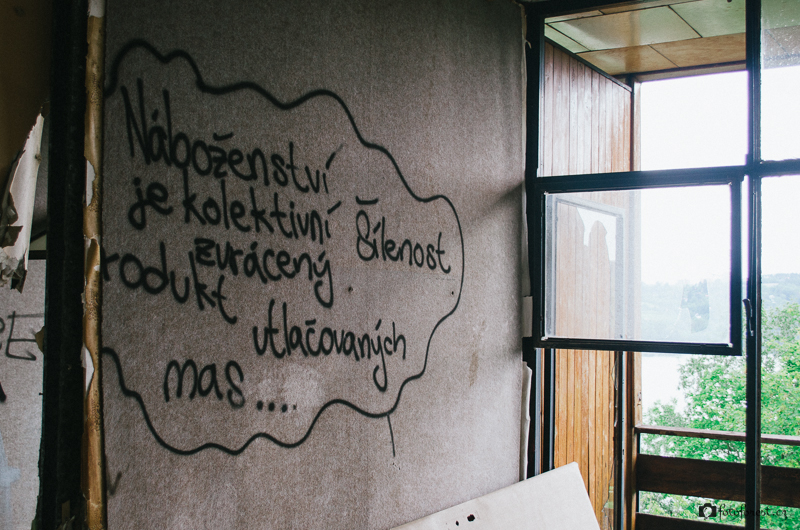 Náboženství
je kolektivní Šílenost
zvrácený
rodukt utlačovaných
mas ....